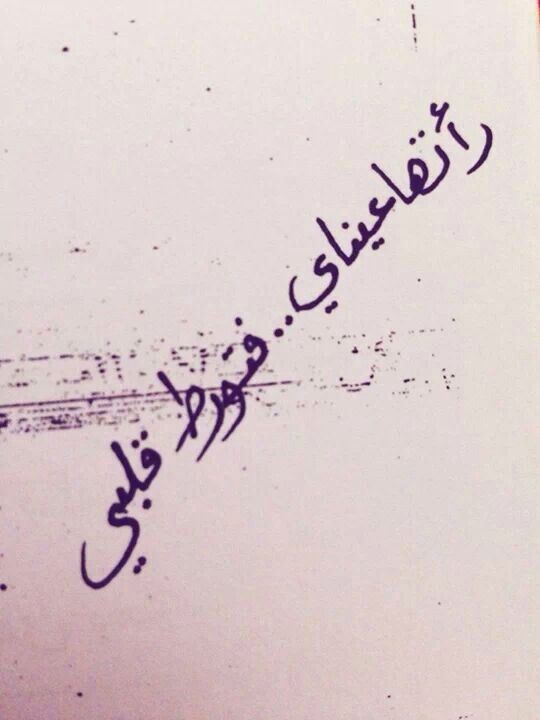 رأتها عيناي.. فتورط قلبي